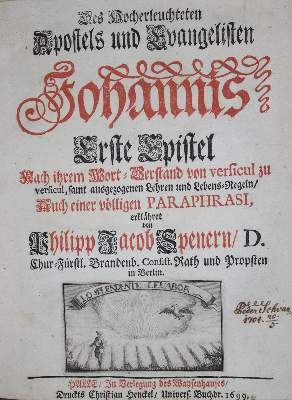 Des Hocherleuchteten
Apostels und Evangelisten
Johannis
Erste Epistel
Nach ihrem Wort-Verstand von versicul zu
versicul, samt ausgezogenen Lehren und Lebens-Regeln/
Auch einer völligen PARAPHRASI,
erkläret
von
Philipp Jacob Spenern/ D.
Chur-Fürstl. Brandenb. Consist. Rath und Propsten
in Berlin.
SPLENDENTE LEVABOR
HALLE/ In Verlegung des Waysenhauses/
Druckts Christian Henckel/ Univers. Buchdr. 1699.